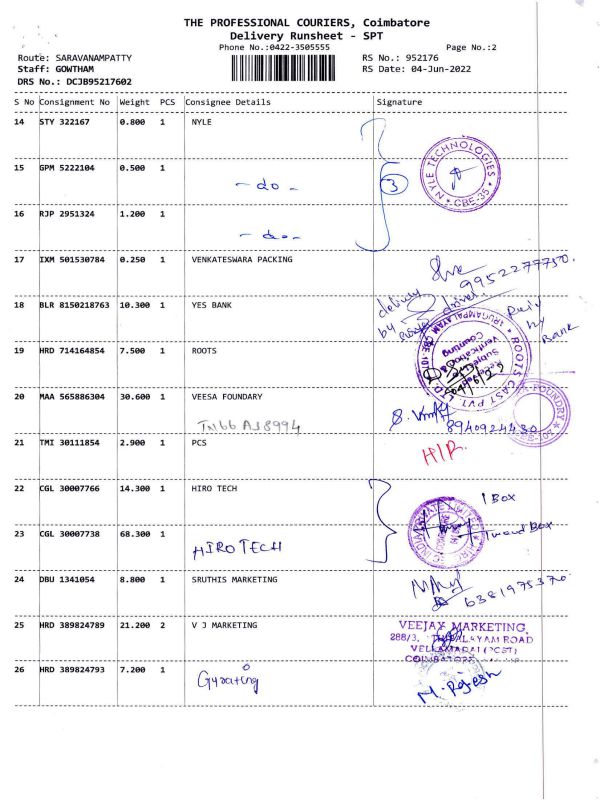 THE PROFESSIONAL COURIERS, Coimbatore
Delivery Runsheet - SPT
Phone No.:0422-3505555 Page No.:2
Route: SARAVANAMPATTY RS No.: 952176
Staff: GOWTHAM RS Date: 04-Jun-2022
DRS No.: DCJB95217602
S No Consignment No Weight PCS Consignee Details Signature
14 STY 322167 0.800 1 NYLE
15 GPM 5222104 0.500 1
- do - 3
NYLE TECHNOLOGIES * CBE-35 *
16 RJP 2951324 1.200 1
- do -
17 IXM 501530784 0.250 1 VENKATESWARA PACKING
9952277750.
18 BLR 8150218763 10.300 1 YES BANK
delivery
by driver.
by
Bank
19 HRD 714164854 7.500 1 ROOTS
ROOTS CAST PVT LTD
Subject to
Verification &
Counting
20 MAA 565886304 30.600 1 VEESA FOUNDARY
TN66 AJ8994
8940924430
FOUNDRY
21 TMI 30111854 2.900 1 PCS
H/R.
22 CGL 30007766 14.300 1 HIRO TECH
1 Box
23 CGL 30007738 68.300 1
HIRO TECH
Box
24 DBU 1341054 8.800 1 SRUTHIS MARKETING
6381975370
25 HRD 389824789 21.200 2 V J MARKETING
VEEJAY MARKETING,
288/3, ROAD
COIMBATORE
26 HRD 389824793 7.200 1
Gyrating
M. Rajesh